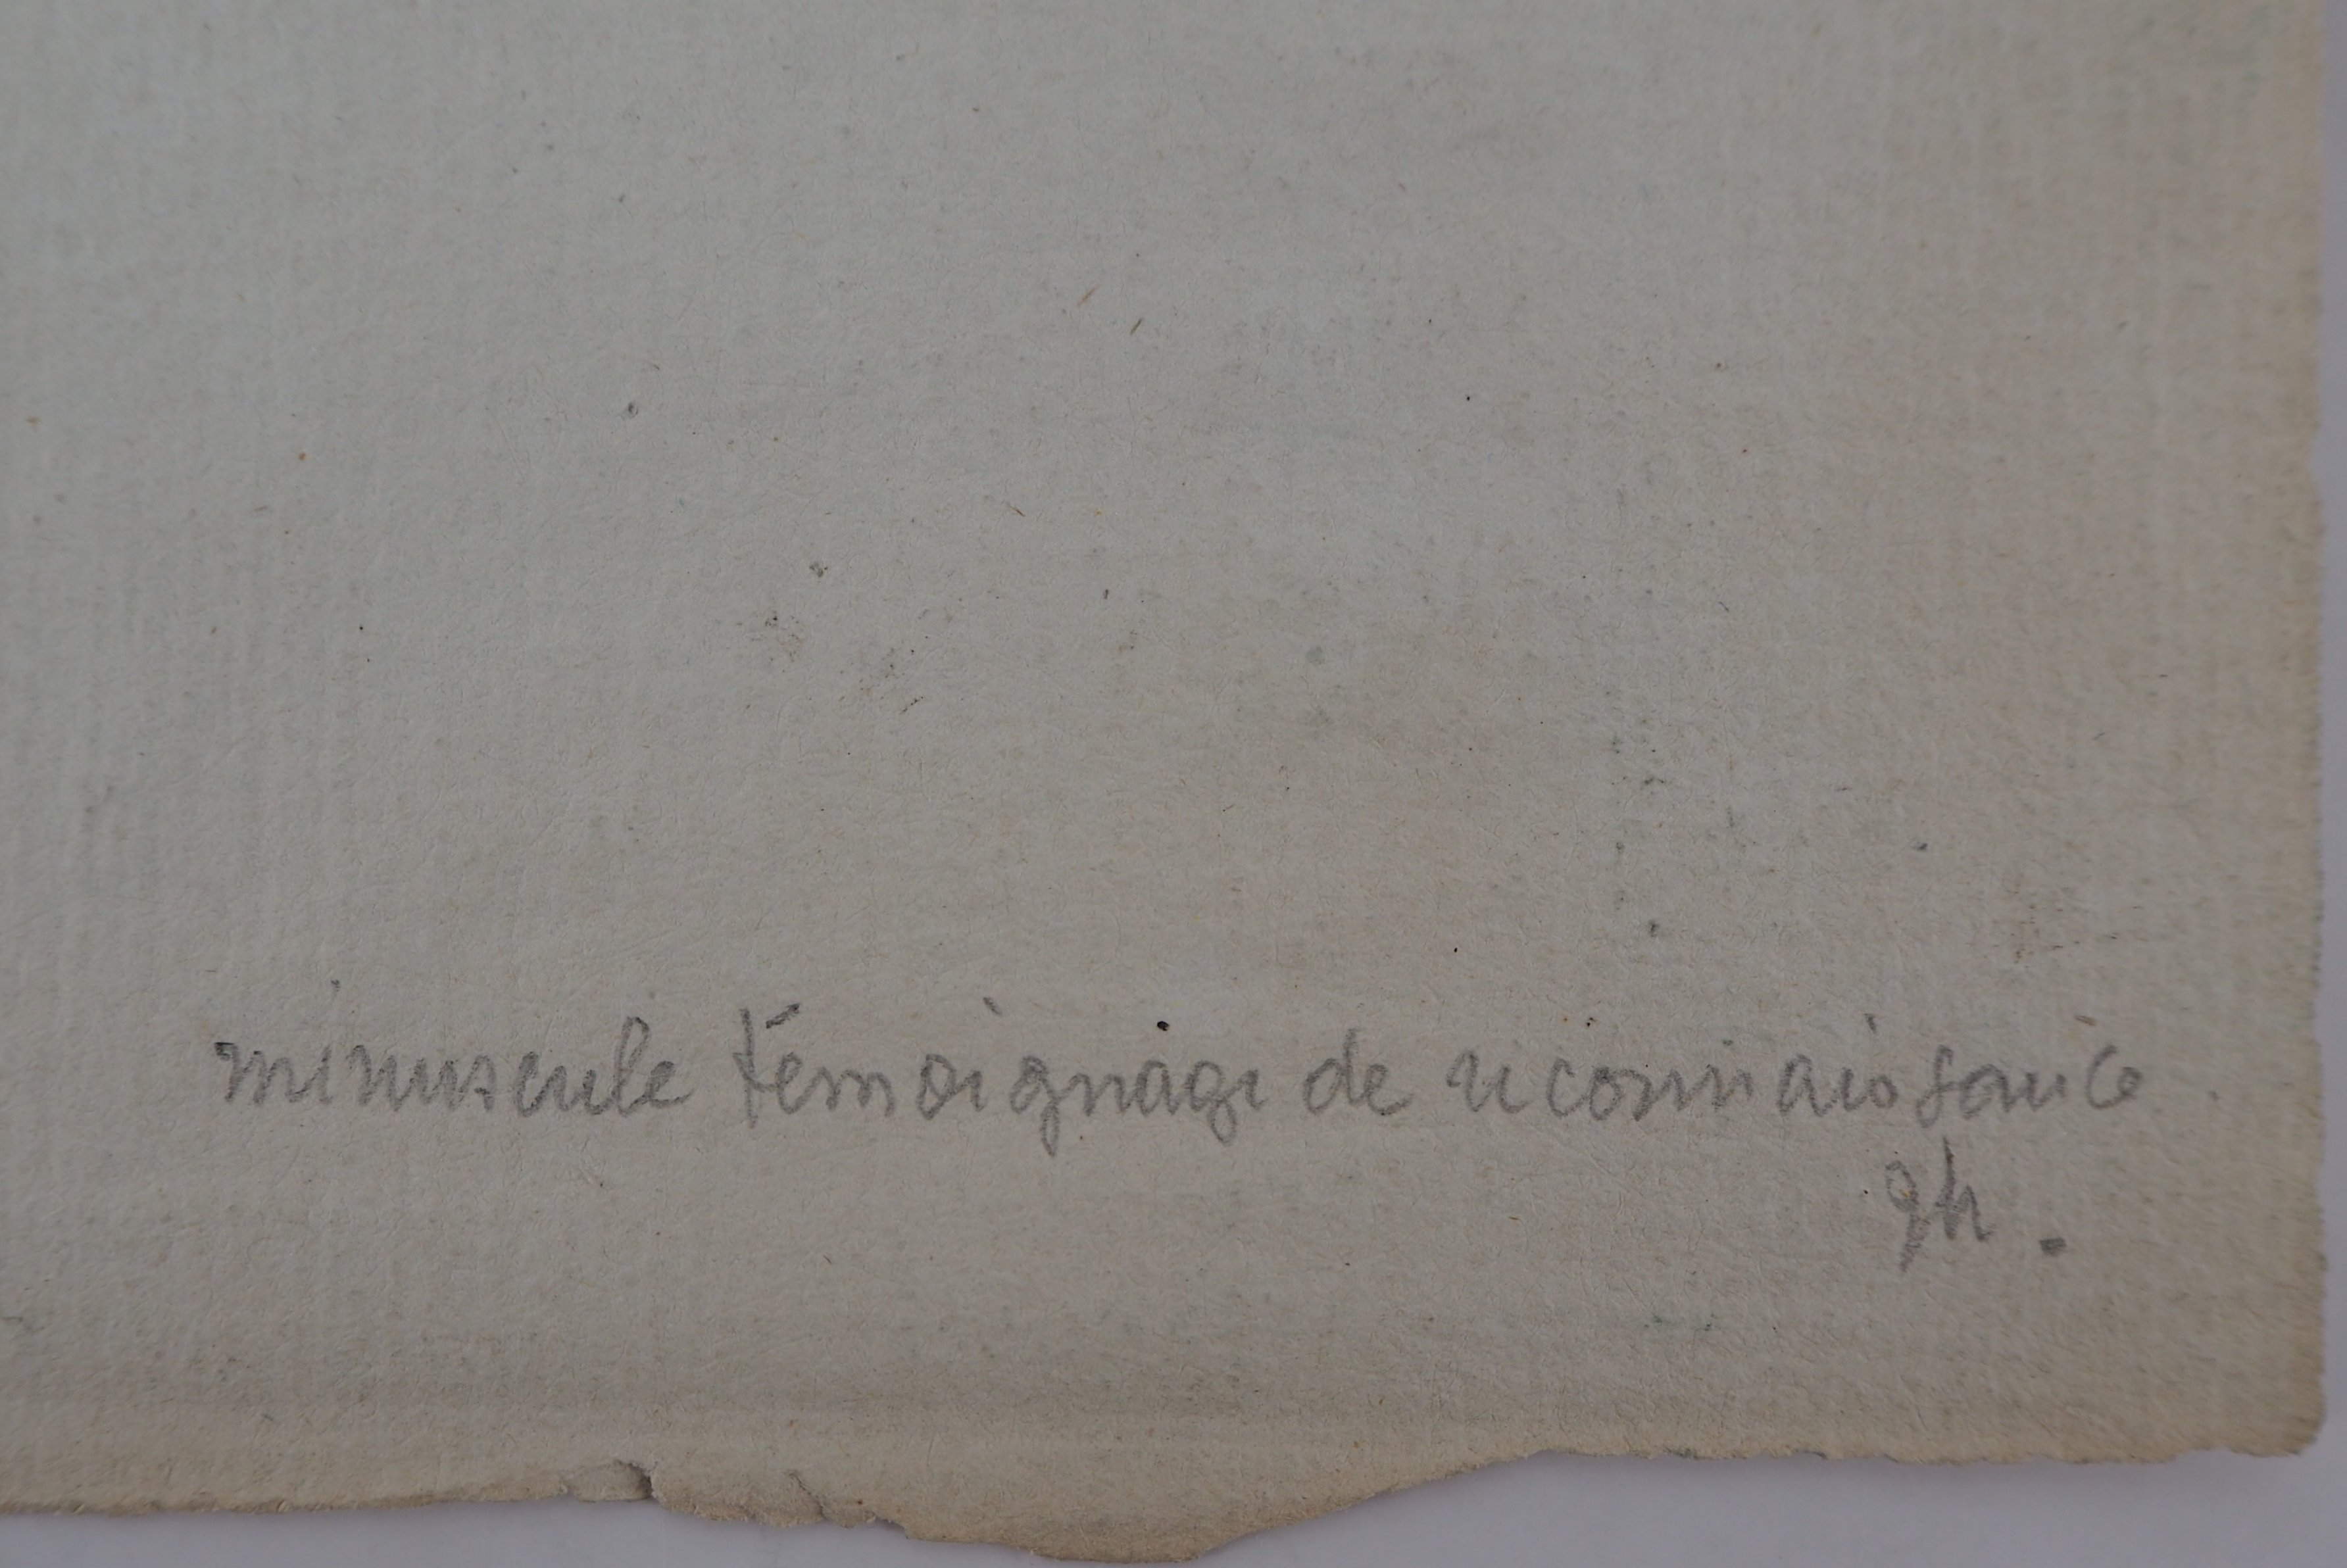 minuscule témoignage de reconnaissance
gh.